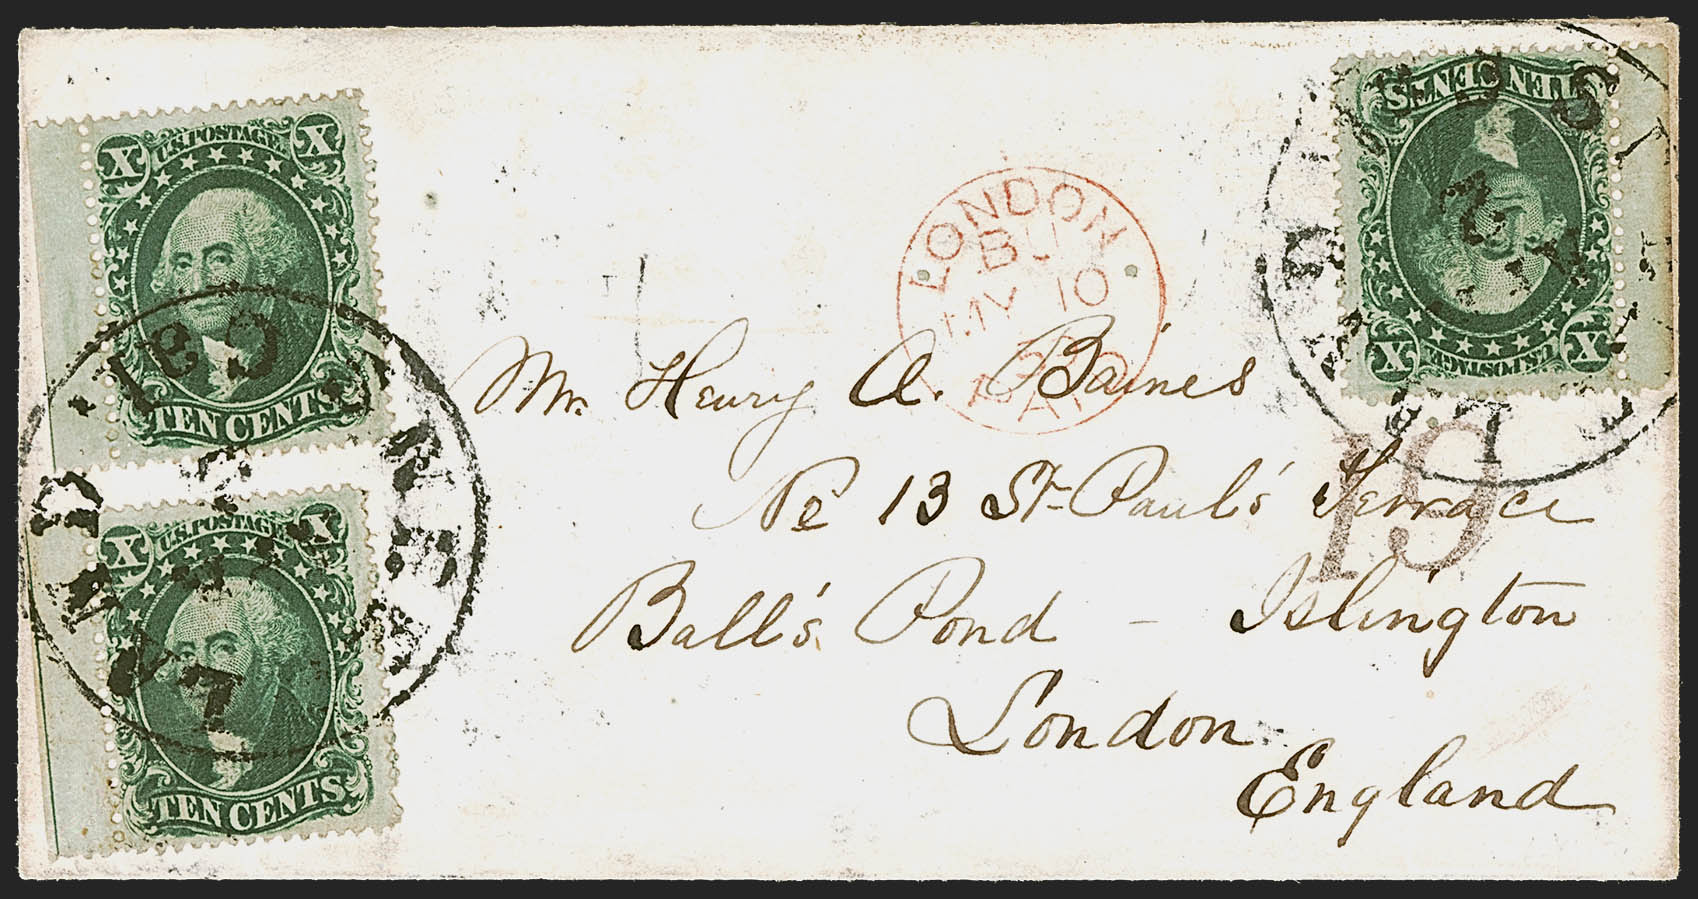 X X
U.S. POSTAGE
TEN CENTS
X X
U.S. POSTAGE
TEN CENTS
Cal.
LONDON
MY 10
PAID
TEN CENTS
U.S. POSTAGE
X X
19
Mr. Henry A. Baines
No 13 St Paul's Terrace
Ball's Pond – Islington
London
England